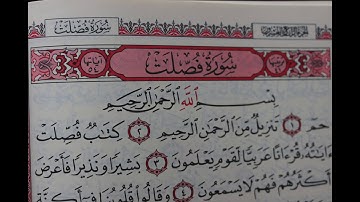 سُورَةُ فُصِّلَتْ
سُورَةُ فُصِّلَتْ
بِسْمِ اللَّهِ الرَّحْمَٰنِ الرَّحِيمِ
حمٓ ١ تَنزِيلٌ مِّنَ الرَّحْمَٰنِ الرَّحِيمِ ٢ كِتَٰبٌ فُصِّلَتْ
ءَايَٰتُهُۥ قُرْءَانًا عَرَبِيًّا لِّقَوْمٍ يَعْلَمُونَ ٣ بَشِيرًا وَنَذِيرًا فَأَعْرَضَ
أَكْثَرُهُمْ فَهُمْ لَا يَسْمَعُونَ ٤ وَقَالُوا۟ قُلُوبُنَا فِىٓ أَكِنَّةٍ